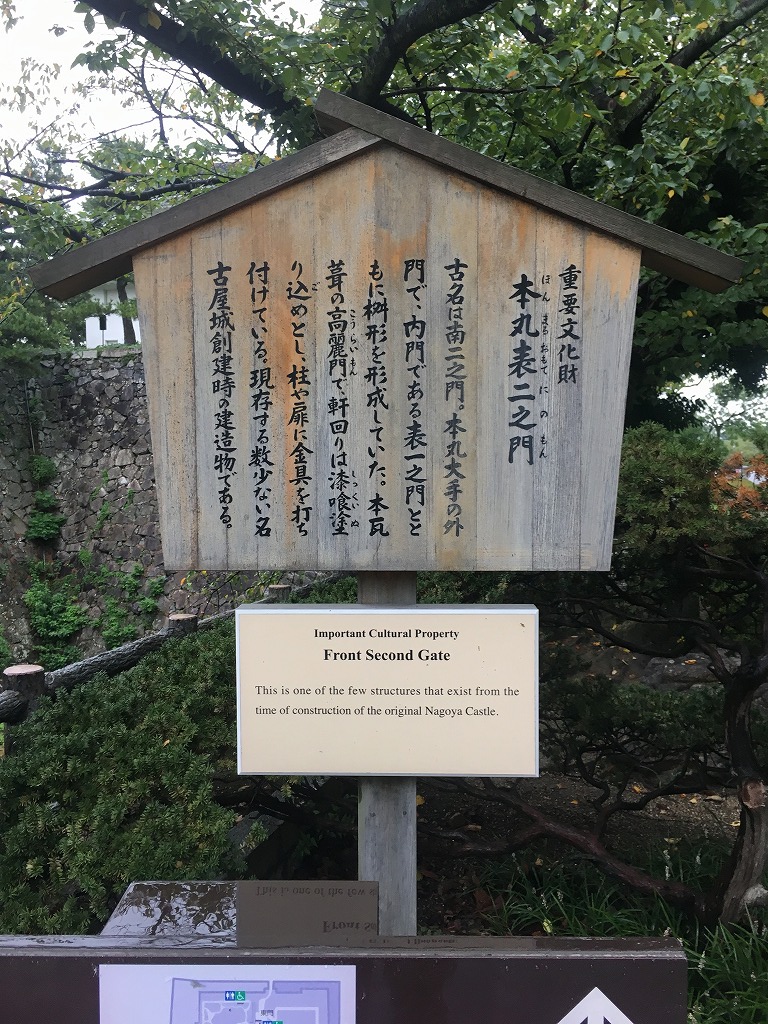 重要文化財
本丸表二之門
ほん まる おもて に の もん
古名は南二之門。本丸大手の外
門で、内門である表一之門とと
もに桝形を形成していた。本瓦
葺の高麗門で、軒回りは漆喰塗
こうらいもん
しっくいぬ
り込めとし、柱や扉に金具を打ち
ご
付けている。現存する数少ない名
古屋城創建時の建造物である。
Important Cultural Property
Front Second Gate
This is one of the few structures that exist from the
time of construction of the original Nagoya Castle.
東門